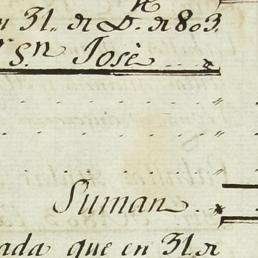 31. de D.re de 803.
Sn. Josè
Suman
ada que en 31 de